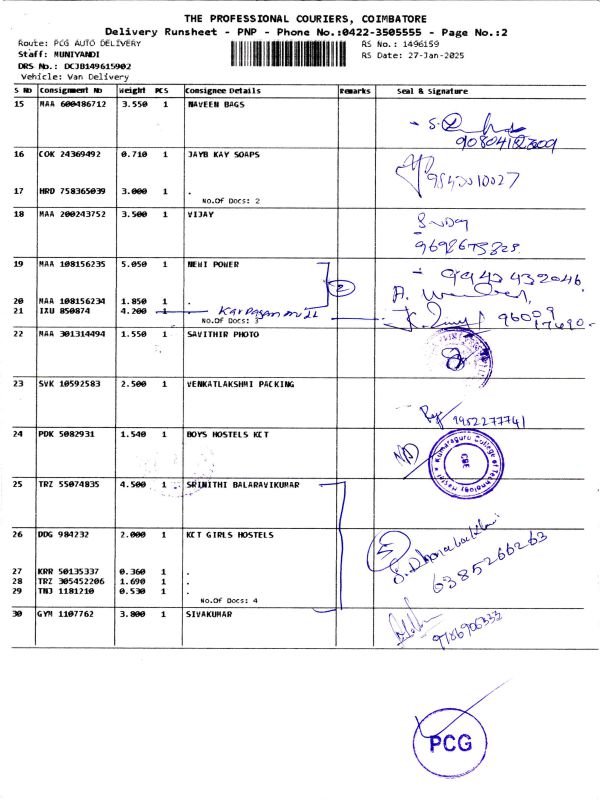 THE PROFESSIONAL COURIERS, COIMBATORE
Delivery Runsheet - PNP - Phone No.:0422-3505555 - Page No.:2
Route: PCG AUTO DELIVERY
RS No.: 1496159
Staff: MUNIYANDI
RS Date: 27-Jan-2025
DRS No.: DCJB149615902
Vehicle: Van Delivery
S No Consignment No Weight PCS Consignee Details Remarks Seal & Signature
15 MAA 600486712 3.550 1 NAVEEN BAGS
16 COK 24369492 0.710 1 JAYB KAY SOAPS
9843010027
17 HRD 758365039 3.000 1 .
No.Of Docs: 2
18 MAA 200243752 3.500 1 VIJAY
19 MAA 108156235 5.050 1 NEWI POWER
2
9942432046
20 MAA 108156234 1.850 1 .
21 IXU 850874 4.200 1
No.Of Docs: 3
22 MAA 301314494 1.550 1 SAVITHIR PHOTO
23 SVK 10592583 2.500 1 VENKATLAKSHMI PACKING
9952277741
24 PDK 5082931 1.540 1 BOYS HOSTELS KCT
Kumaraguru College of Technology Hostel
CBE
25 TRZ 55074835 4.500 1 SRINITHI BALARAVIKUMAR
26 DDG 984232 2.000 1 KCT GIRLS HOSTELS
5
6385266263
27 KRR 50135337 0.360 1 .
28 TRZ 305452206 1.690 1 .
29 TNJ 1181210 0.530 1 .
No.Of Docs: 4
30 GYM 1107762 3.800 1 SIVAKUMAR
PCG